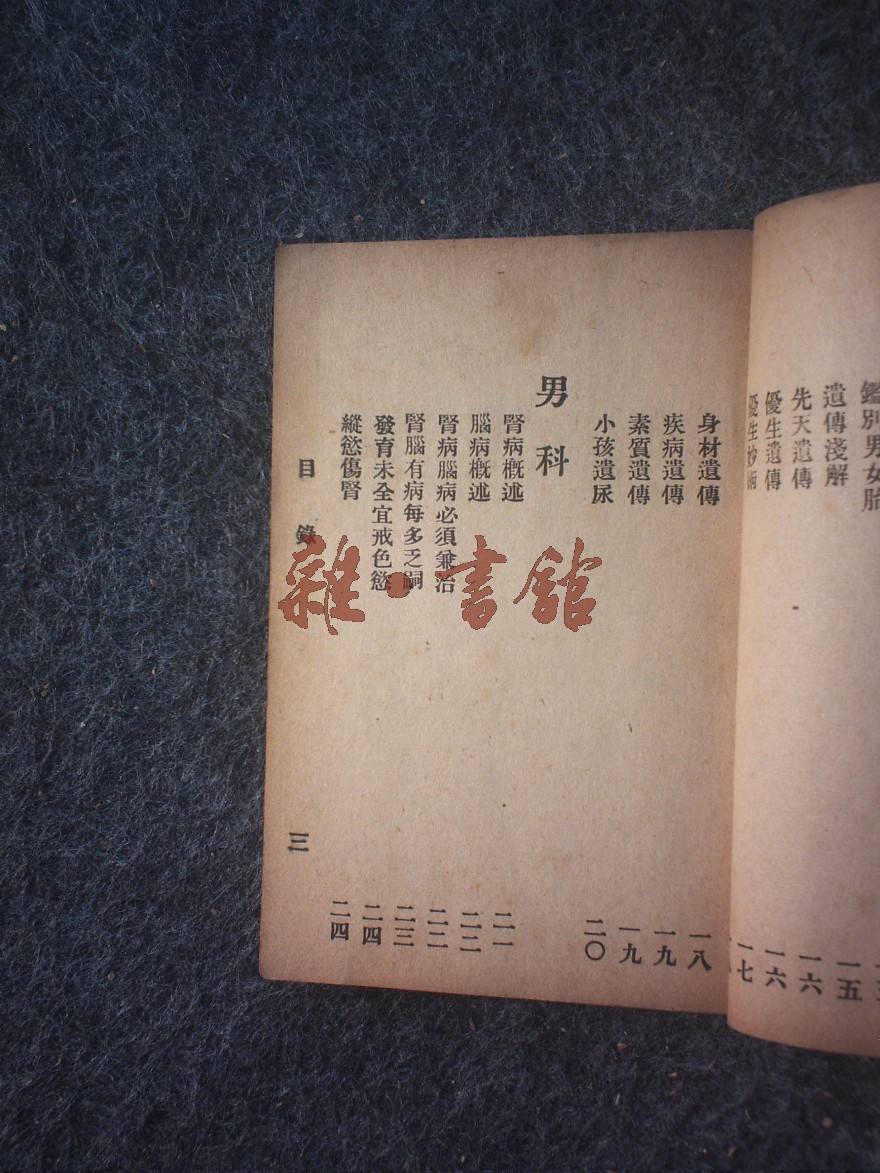 鑑別男女胎
遺傳淺解 一五
先天遺傳 一六
優生遺傳 一六
優生妙術 一七
身材遺傳 一八
疾病遺傳 一九
素質遺傳 一九
小孩遺尿 二〇
男科
腎病概述 二一
腦病概述 二二
腎病腦病必須兼治 二二
腎腦有病每多乏嗣 二三
發育未全宜戒色慾 二四
縱慾傷腎 二四
目錄 三
雜·書館